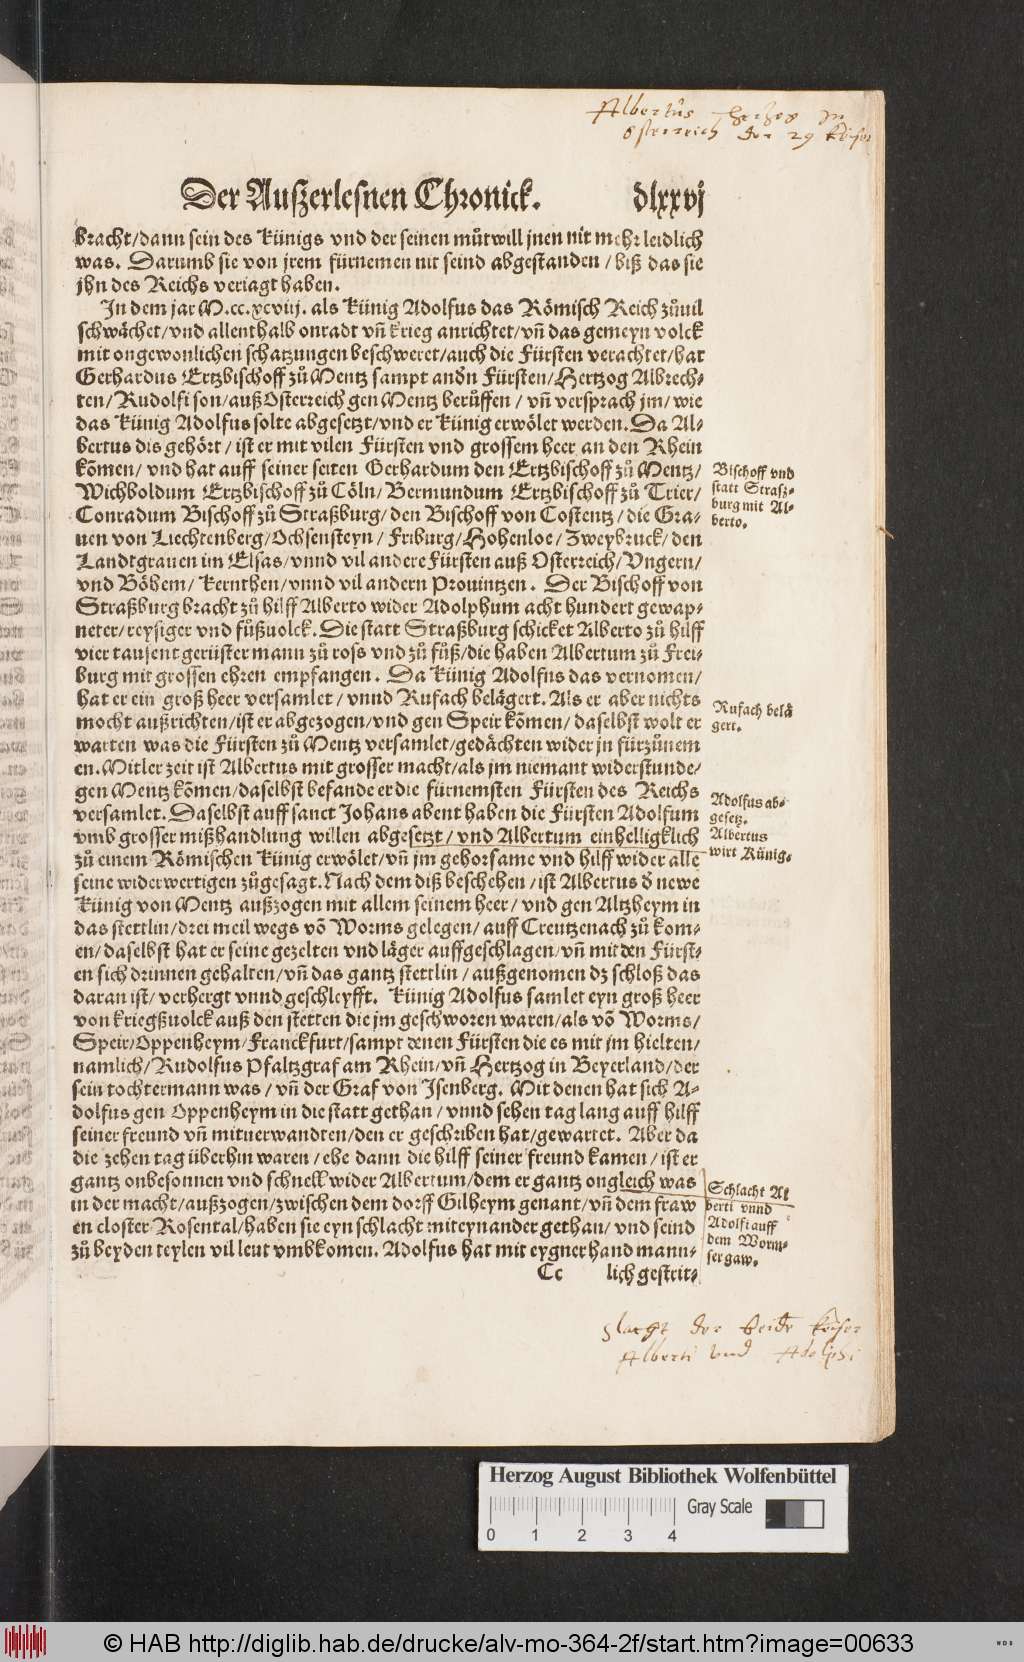 Albertus Hertzog In
Osterreich der 29 Keiser
Der Außerlesnen Chronick. dlxxvj
bracht/dann sein des Künigs vnd der seinen můtwill jnen nit mehr leidlich
was. Darumb sie von jrem fürnemen nit seind abgestanden/biß das sie
jhn des Reichs veriagt haben.
In dem jar M.cc.xcviij. als Künig Adolfus das Römisch Reich zůuil
schwächet/vnd allenthalb onradt vñ krieg anrichtet/vñ das gemeyn volck
mit ongewonlichen schatzungen beschweret/auch die Fürsten verachtet/hat
Gerhardus Ertzbischoff zů Mentz sampt andn̄ Fürsten/Hertzog Albrech-
ten/Rudolfi son/auß Osterreich gen Mentz berůffen/vñ versprach jm/wie
das Künig Adolfus solte abgesetzt/vnd er Künig erwölet werden. Da Al-
bertus dis gehört/ist er mit vilen Fürsten vnd grossem heer an den Rhein
kōmen/vnd hat auff seiner seiten Gerhardum den Ertzbischoff zů Mentz/
Bischoff vnd
Wichboldum Ertzbischoff zů Cöln/Bermundum Ertzbischoff zů Trier/
statt Straß-
Conradum Bischoff zů Straßburg/den Bischoff von Costentz/die Gra-
burg mit Al-
berto.
uen von Liechtenberg/Ochsensteyn/Friburg/Hohenloe/Zweybruck/den
Landtgrauen im Elsas/vnnd vil andere Fürsten auß Osterreich/Vngern/
vnd Böhem/Kernthen/vnnd vil andern Prouintzen. Der Bischoff von
Straßburg bracht zů hilff Alberto wider Adolphum acht hundert gewap-
neter/reysiger vnd fůßuolck. Die statt Straßburg schicket Alberto zů hilff
vier tausent gerüster mann zů ross vnd zů fůß/die haben Albertum zů Frei-
burg mit grossen ehren empfangen. Da Künig Adolfus das vernomen/
hat er ein groß heer versamlet/vnnd Rufach belägert. Als er aber nichts
Rufach belä
mocht außrichten/ist er abgezogen/vnd gen Speir kōmen/daselbst wolt er
gert.
warten was die Fürsten zů Mentz versamlet/gedächten wider jn fürzůnem
en. Mitler zeit ist Albertus mit grosser macht/als jm niemant widerstunde/
gen Mentz kōmen/daselbst befande er die fürnemsten Fürsten des Reichs
Adolfus ab-
versamlet. Daselbst auff sanct Johans abent haben die Fürsten Adolfum
gesetz.
vmb grosser mißhandlung willen abgesetzt/vnd Albertum einhelligklich
Albertus
zů einem Römischen Künig erwölet/vñ jm gehorsame vnd hilff wider alle
wirt Künig.
seine widerwertigen zůgesagt. Nach dem diß beschehen/ist Albertus d̄ newe
Künig von Mentz außzogen mit allem seinem heer/vnd gen Altzheym in
das stettlin/drei meil wegs vō Worms gelegen/auff Creutzenach zů kom-
en/daselbst hat er seine gezelten vnd läger auffgeschlagen/vñ mit den Fürst-
en sich drinnen gehalten/vñ das gantz stettlin/außgenomen dz schloß das
daran ist/verhergt vnnd geschleyfft. Künig Adolfus samlet eyn groß heer
von kriegßuolck auß den stetten die jm geschworen waren/als vō Worms/
Speir/Oppenheym/Franckfurt/sampt denen Fürsten die es mit jm hielten/
namlich/Rudolfus Pfaltzgraf am Rhein/vñ Hertzog in Beyerland/der
sein tochtermann was/vñ der Graf von Isenberg. Mit denen hat sich A-
dolfus gen Oppenheym in die statt gethan/vnnd sehen tag lang auff hilff
seiner freund vñ mituerwandten/den er geschriben hat/gewartet. Aber da
die zehen tag überhin waren/ehe dann die hilff seiner freund kamen/ist er
gantz onbesonnen vnd schnell wider Albertum/dem er gantz ongleich was
Schlacht Al
in der macht/außzogen/zwischen dem dorff Gilheym genant/vñ dem fraw
berti vnnd
en closter Rosental/haben sie eyn schlacht miteynander gethan/vnd seind
Adolfi auff
dem Worm-
zů beyden teylen vil leut vmbkomen. Adolfus hat mit eygner hand mann-
ser gaw.
Cc lich gestrit-
slacht der beide Keiser
Alberti vnd Adolphi
Herzog August Bibliothek Wolfenbüttel
Gray Scale
0 1 2 3 4
© HAB http://diglib.hab.de/drucke/alv-mo-364-2f/start.htm?image=00633